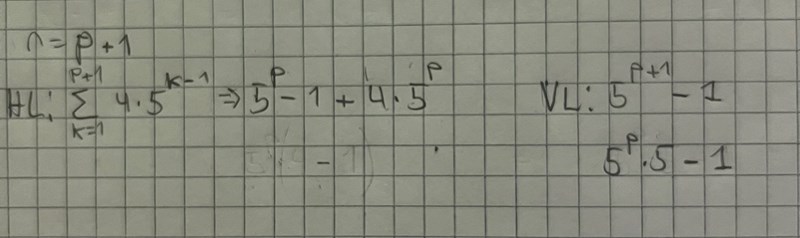 n = p + 1
HL: \sum_{k=1}^{p+1} 4 \cdot 5^{k-1} ⇒ 5^p - 1 + 4 \cdot 5^p VL: 5^{p+1} - 1
5^p \cdot 5 - 1